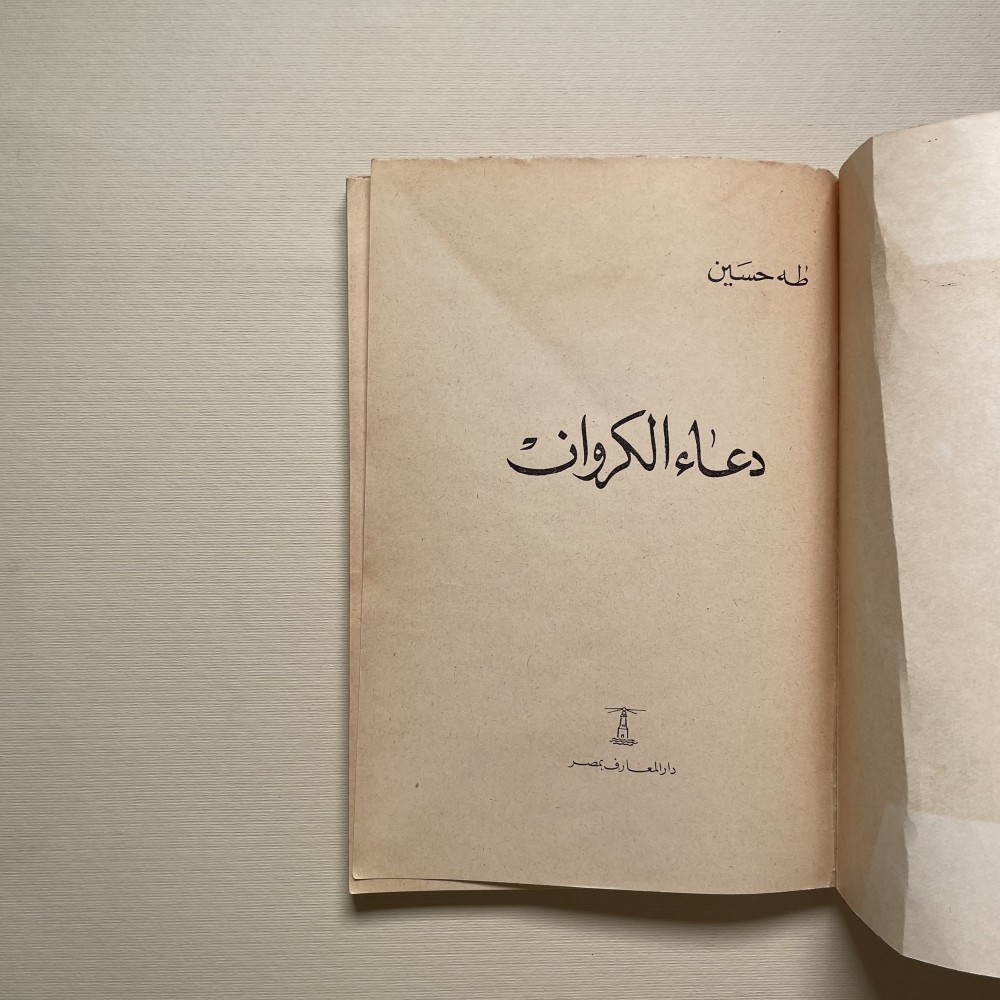 طه حسَين
دعاء الكروان
دار المعارف بمصر